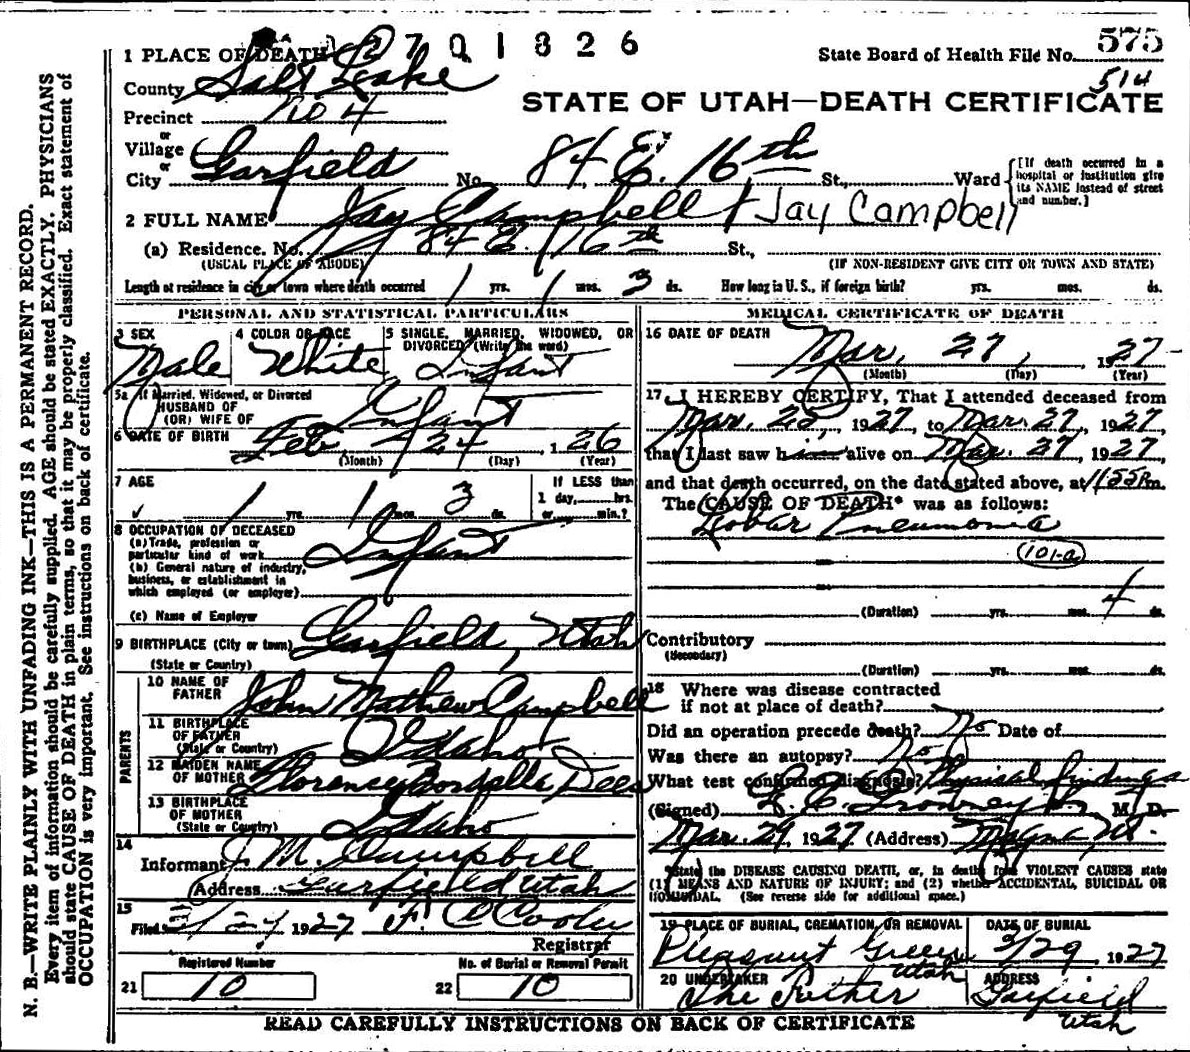 2701826
1 PLACE OF DEATH
State Board of Health File No. 575
514
County Salt Lake
STATE OF UTAH—DEATH CERTIFICATE
Precinct No 4
or
Village
or
City Garfield No. 84 E. 16th St., Ward
[If death occurred in a hospital or institution give its NAME instead of street and number.]
2 FULL NAME Jay Campbell Jay Campbell
(a) Residence. No. 84 E. 16th St.,
(USUAL PLACE OF ABODE) (IF NON-RESIDENT GIVE CITY OR TOWN AND STATE)
Length of residence in city or town where death occurred 1 yrs. 1 mos. 3 ds. How long in U. S., if foreign birth? yrs. mos. ds.
PERSONAL AND STATISTICAL PARTICULARS
3 SEX Male
4 COLOR OR RACE White
5 SINGLE, MARRIED, WIDOWED, OR DIVORCED (Write the word) Infant
5a If Married, Widowed, or Divorced
HUSBAND OF
(OR) WIFE OF Infant
6 DATE OF BIRTH Feb 24 1 26
(Month) (Day) (Year)
7 AGE 1 yrs. 1 mos. 3 ds.
If LESS than
1 day, hrs.
or min.?
8 OCCUPATION OF DECEASED
(a) Trade, profession or
particular kind of work Infant
(b) General nature of industry,
business, or establishment in
which employed (or employer)
(c) Name of Employer
9 BIRTHPLACE (City or town) Garfield, Utah
(State or Country)
PARENTS
10 NAME OF
FATHER John Mathew Campbell
11 BIRTHPLACE
OF FATHER Idaho
(State or Country)
12 MAIDEN NAME
OF MOTHER Florence Dees
13 BIRTHPLACE
OF MOTHER Idaho
(State or Country)
14
Informant J. M. Campbell
(Address Garfield Utah
15
Filed 1927 F. C
Registrar
Registered Number
21 10
No. of Burial or Removal Permit
22 10
MEDICAL CERTIFICATE OF DEATH
16 DATE OF DEATH Mar. 27, 1927
(Month) (Day) (Year)
17 I HEREBY CERTIFY, That I attended deceased from
Mar. 25, 1927, to Mar. 27, 1927,
that I last saw him alive on Mar. 27, 1927,
and that death occurred, on the date stated above, at 1155 P m.
The CAUSE OF DEATH* was as follows:
Lobar Pneumonia
101-a
(Duration) yrs. mos. 4 ds.
Contributory
(Secondary)
(Duration) yrs. mos. ds.
18 Where was disease contracted
if not at place of death?
Did an operation precede death? No Date of
Was there an autopsy? No
What test confirmed diagnosis? Physical findings
(Signed) M. D.
Mar. 29, 1927 (Address) Magna Ut.
*State the DISEASE CAUSING DEATH, or, in deaths from VIOLENT CAUSES state
(1) MEANS AND NATURE OF INJURY; and (2) whether ACCIDENTAL, SUICIDAL OR
HOMICIDAL. (See reverse side for additional space.)
19 PLACE OF BURIAL, CREMATION, OR REMOVAL
Pleasant Green
Utah
DATE OF BURIAL
3/29 1927
20 UNDERTAKER
The Father
ADDRESS
Garfield
Utah
READ CAREFULLY INSTRUCTIONS ON BACK OF CERTIFICATE
N. B.—WRITE PLAINLY WITH UNFADING INK—THIS IS A PERMANENT RECORD.
Every item of information should be carefully supplied. AGE should be stated EXACTLY. PHYSICIANS
should state CAUSE OF DEATH in plain terms, so that it may be properly classified. Exact statement of
OCCUPATION is very important. See instructions on back of certificate.